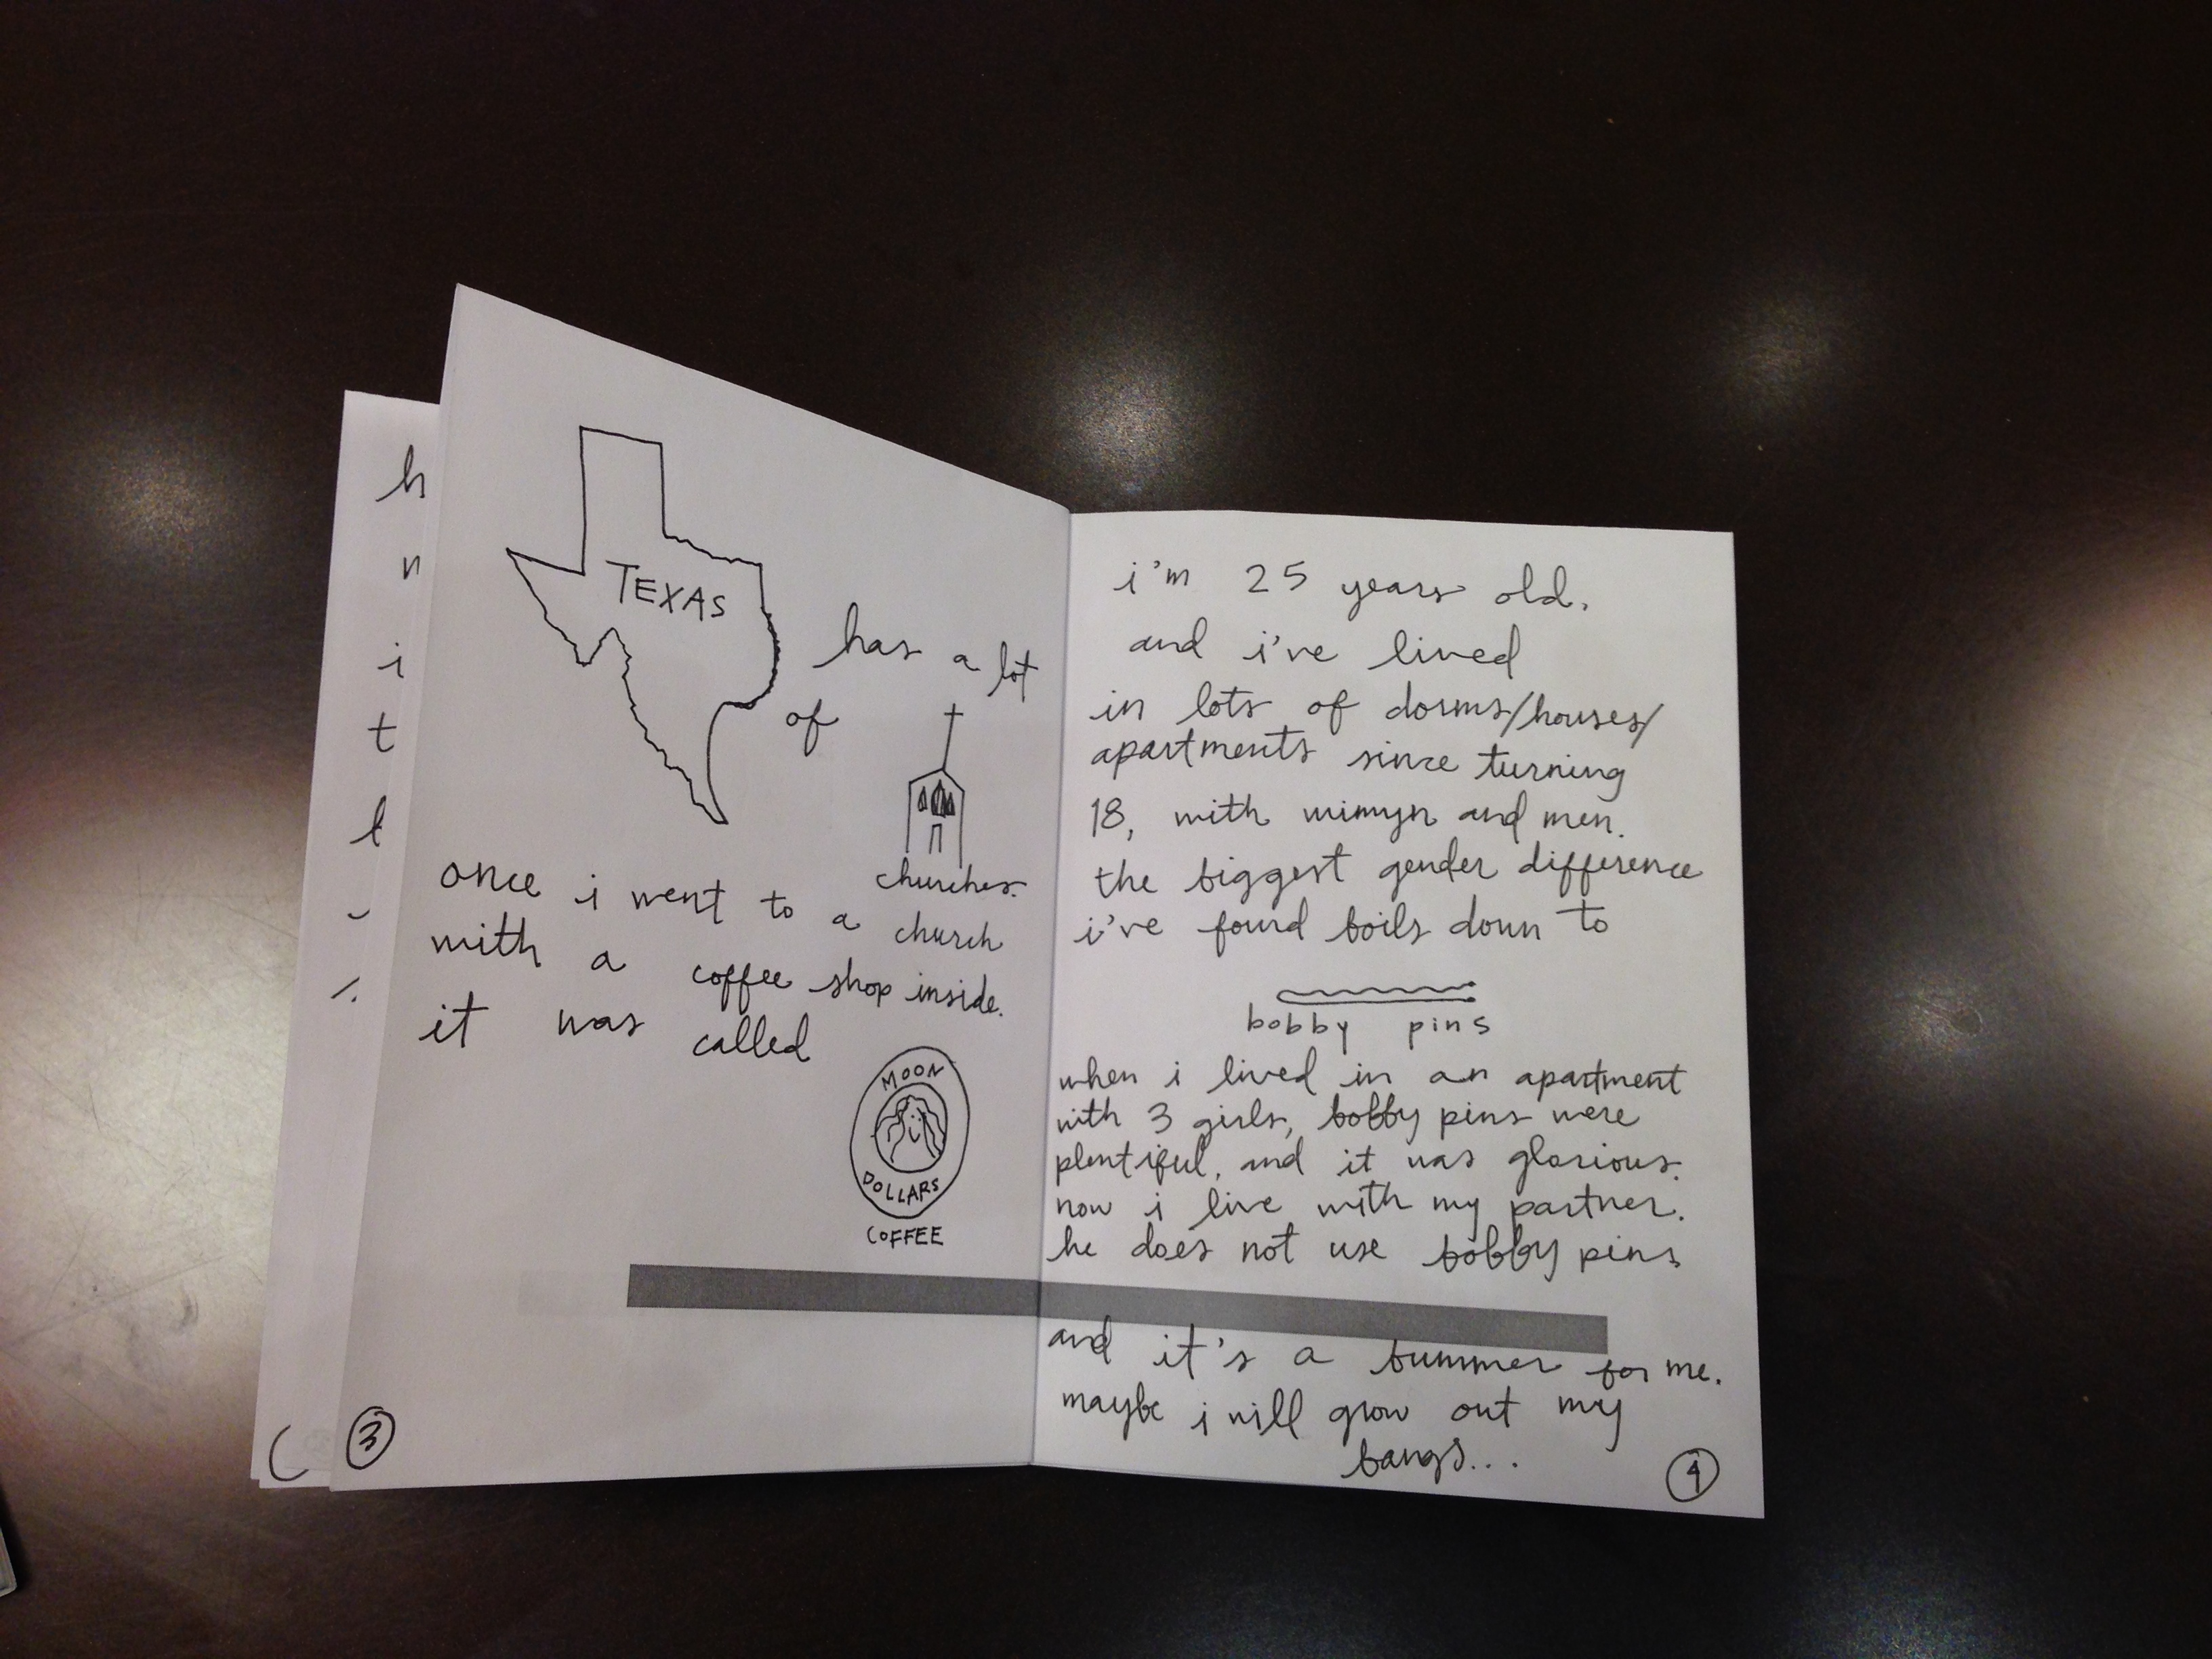 h
n
i
t
l
TEXAS
has a lot
of
churches.
once i went to a church
with a coffee shop inside.
it was called
MOON
DOLLARS
COFFEE
3
i'm 25 years old.
and i've lived
in lots of dorms/houses/
apartments since turning
18, with wimyn and men.
the biggest gender difference
i've found boils down to
bobby pins
when i lived in an apartment
with 3 girls, bobby pins were
plentiful, and it was glorious.
now i live with my partner.
he does not use bobby pins
and it's a bummer for me.
maybe i will grow out my
bangs...
4